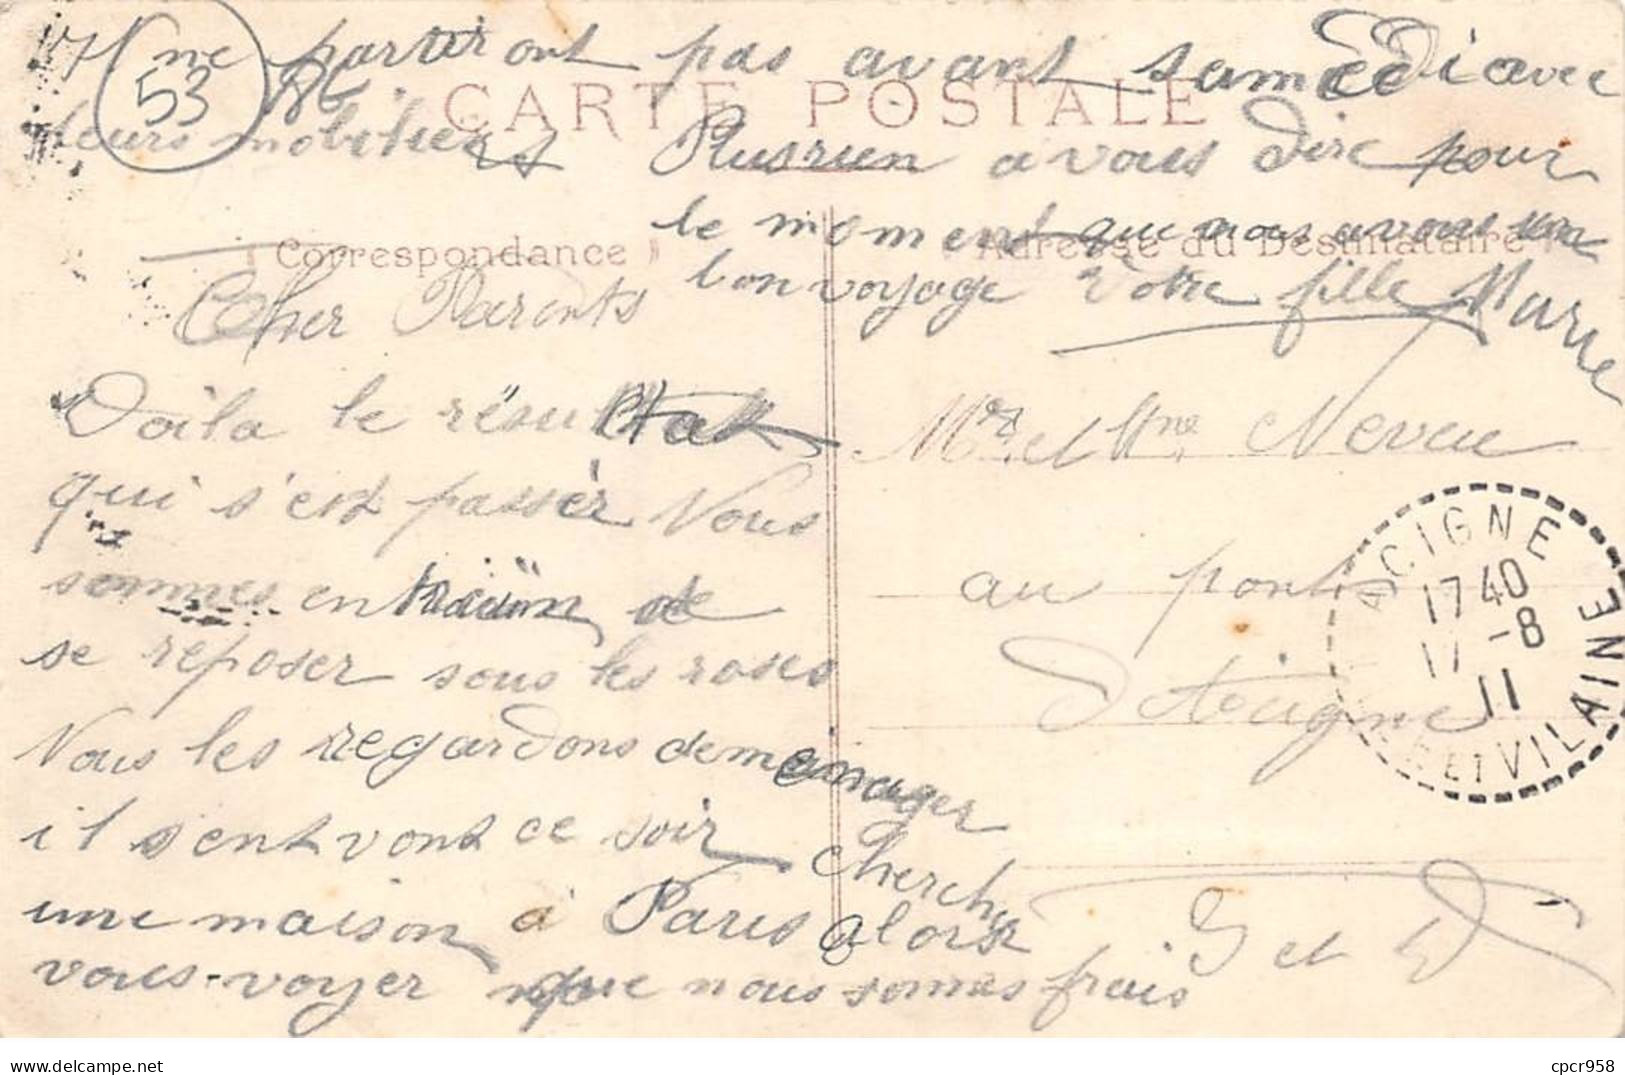 CARTE POSTALE
Correspondance
Adresse du Destinataire
Cher Parents
Voila le résultat
qui s'est passér Nous
sommes en traiin de
se reposer sous les roses
Nous les regardons demeinager
il s'ent vont ce soir cherche
une maison à Paris alors
vous voyer que nous somes frais
Il ne partiront pas avant samedi avec
leurs mobiliers Plusrien a vous dire pour
le moment que nous avons un
bon voyage Votre fille Marie
Mr et Mme Neveu
au pont
D'Acigné
I et V
ACIGNE
17 40
17 -8
11
ILLE ET VILAINE
53
cpcr958